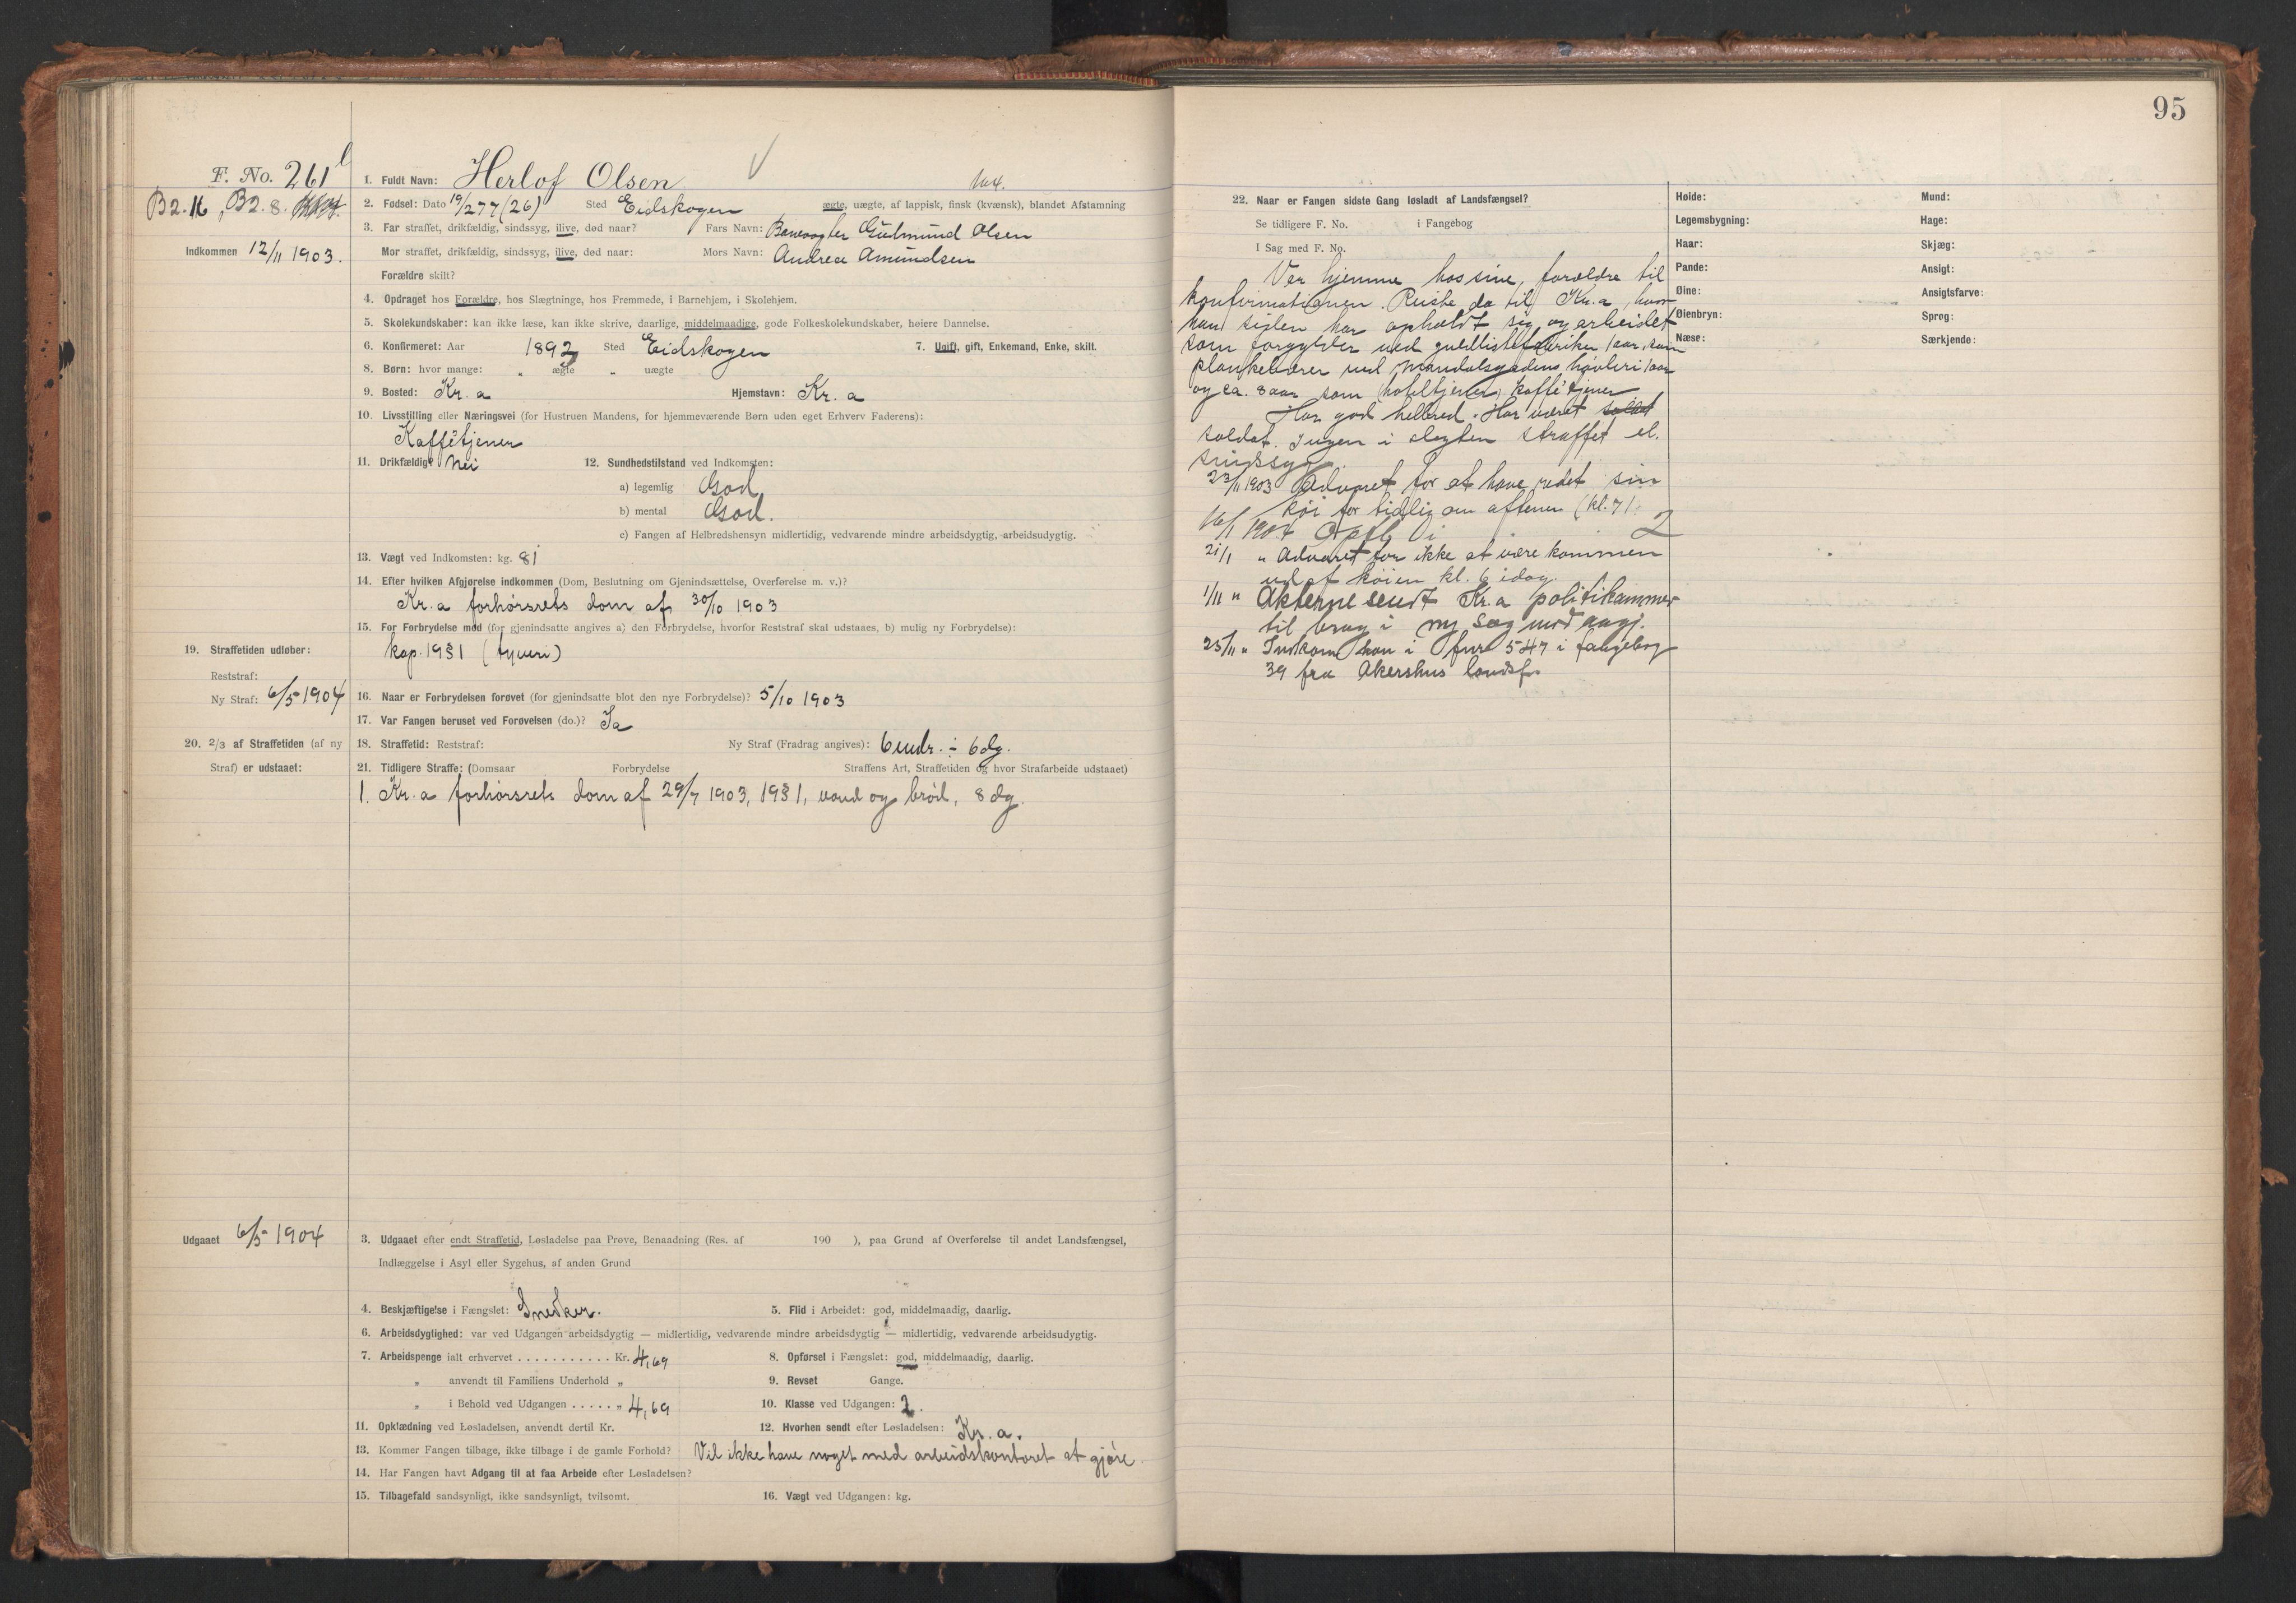 95
F. No. 261
B2.16, B2.8.
Indkommen 12/11 1903.
1. Fuldt Navn: Herlof Olsen
2. Fødsel: Dato 19/2 77 (26) Sted Eidskogen ægte, uægte, af lappisk, finsk (kvænsk), blandet Afstamning
3. Far straffet, drikfældig, sindssyg, ilive, død naar? Fars Navn: Banevogter Gulmund Olsen
Mor straffet, drikfældig, sindssyg, ilive, død naar: Mors Navn: Andrea Amundsen
Forældre skilt?
4. Opdraget hos Forældre, hos Slægtninge, hos Fremmede, i Barnehjem, i Skolehjem.
5. Skolekundskaber: kan ikke læse, kan ikke skrive, daarlige, middelmaadige, gode Folkeskolekundskaber, høiere Dannelse.
6. Konfirmeret: Aar 1892 Sted Eidskogen 7. Ugift, gift, Enkemand, Enke, skilt.
8. Børn: hvor mange: " ægte " uægte
9. Bosted: Kr.a Hjemstavn: Kr.a
10. Livsstilling eller Næringsvei (for Hustruen Mandens, for hjemmeværende Børn uden eget Erhverv Faderens):
Kaffétjener
11. Drikfældig? Nei 12. Sundhedstilstand ved Indkomsten:
a) legemlig God
b) mental God.
c) Fangen af Helbredshensyn midlertidig, vedvarende mindre arbeidsdygtig, arbeidsudygtig.
13. Vægt ved Indkomsten: kg. 81
14. Efter hvilken Afgjørelse indkommen (Dom, Beslutning om Gjenindsættelse, Overførelse m. v.)?
Kr.a forhørsrets dom af 30/10 1903
15. For Forbrydelse mod (for gjenindsatte angives a) den Forbrydelse, hvorfor Reststraf skal udstaaes, b) mulig ny Forbrydelse):
kap. 19 § 1 (tyveri)
19. Straffetiden udløber:
Reststraf:
Ny Straf: 6/5 1904
16. Naar er Forbrydelsen forøvet (for gjenindsatte blot den nye Forbrydelse)? 5/10 1903
17. Var Fangen beruset ved Forøvelsen (do.)? Ja
20. 2/3 af Straffetiden (af ny
Straf) er udstaaet:
18. Straffetid: Reststraf: Ny Straf (Fradrag angives): 6 mdr. ÷ 6 dg.
21. Tidligere Straffe: (Domsaar Forbrydelse Straffens Art, Straffetiden og hvor Strafarbeide udstaaet)
1. Kr.a forhørsrets dom af 29/7 1903, 19 § 1, vand og brød, 8 dg.
Udgaaet 6/5 1904
3. Udgaaet efter endt Straffetid, Løsladelse paa Prøve, Benaadning (Res. af 190 ), paa Grund af Overførelse til andet Landsfængsel,
Indlæggelse i Asyl eller Sygehus, af anden Grund
4. Beskjæftigelse i Fængslet: Snedker. 5. Flid i Arbeidet: god, middelmaadig, daarlig.
6. Arbeidsdygtighed: var ved Udgangen arbeidsdygtig — midlertidig, vedvarende mindre arbeidsdygtig — midlertidig, vedvarende arbeidsudygtig.
7. Arbeidspenge ialt erhvervet . . . . . . . . . . . Kr. 4,69 8. Opførsel i Fængslet: god, middelmaadig, daarlig.
„ anvendt til Familiens Underhold „ 9. Revset Gange.
„ i Behold ved Udgangen . . . . . „ 4,69 10. Klasse ved Udgangen: 2.
11. Opklædning ved Løsladelsen, anvendt dertil Kr. 12. Hvorhen sendt efter Løsladelsen: Kr.a.
13. Kommer Fangen tilbage, ikke tilbage i de gamle Forhold? Vil ikke have noget med arbeidskontoret at gjøre.
14. Har Fangen havt Adgang til at faa Arbeide efter Løsladelsen?
15. Tilbagefald sandsynligt, ikke sandsynligt, tvilsomt. 16. Vægt ved Udgangen: kg.
22. Naar er Fangen sidste Gang løsladt af Landsfængsel?
Se tidligere F. No. i Fangebog
I Sag med F. No.
Var hjemme hos sine forældre til
konfirmationen. Reiste da til Kr.a, hvor
han siden har opholdt sig og arbeidet
som forgylder ved guldlistefabriken 1 aar, som
plankebærer ved Mandalsgadens høvleri 1 aar
og ca. 8 aar som hoteltjener, kaffétjener
Har god helbred. Har været soldat
soldat. Ingen i slegten straffet el.
sindssyg.
23/11 1903 Advaret for at have redet sin
køi for tidlig om aftenen (kl. 7).
16/1 1904 Opfl. i 2
21/1 " Advaret for ikke at være kommen
ud af køien kl. 6 idag.
1/11 " Akterne sendt Kr.a politikammer
til brug i ny sag mod angj.
25/11 " Indkom han i fnr 547 i fangebog
39 fra Akershus landsf.
Høide:
Legemsbygning:
Haar:
Pande:
Øine:
Øienbryn:
Næse:
Mund:
Hage:
Skjæg:
Ansigt:
Ansigtsfarve:
Sprog:
Særkjende: